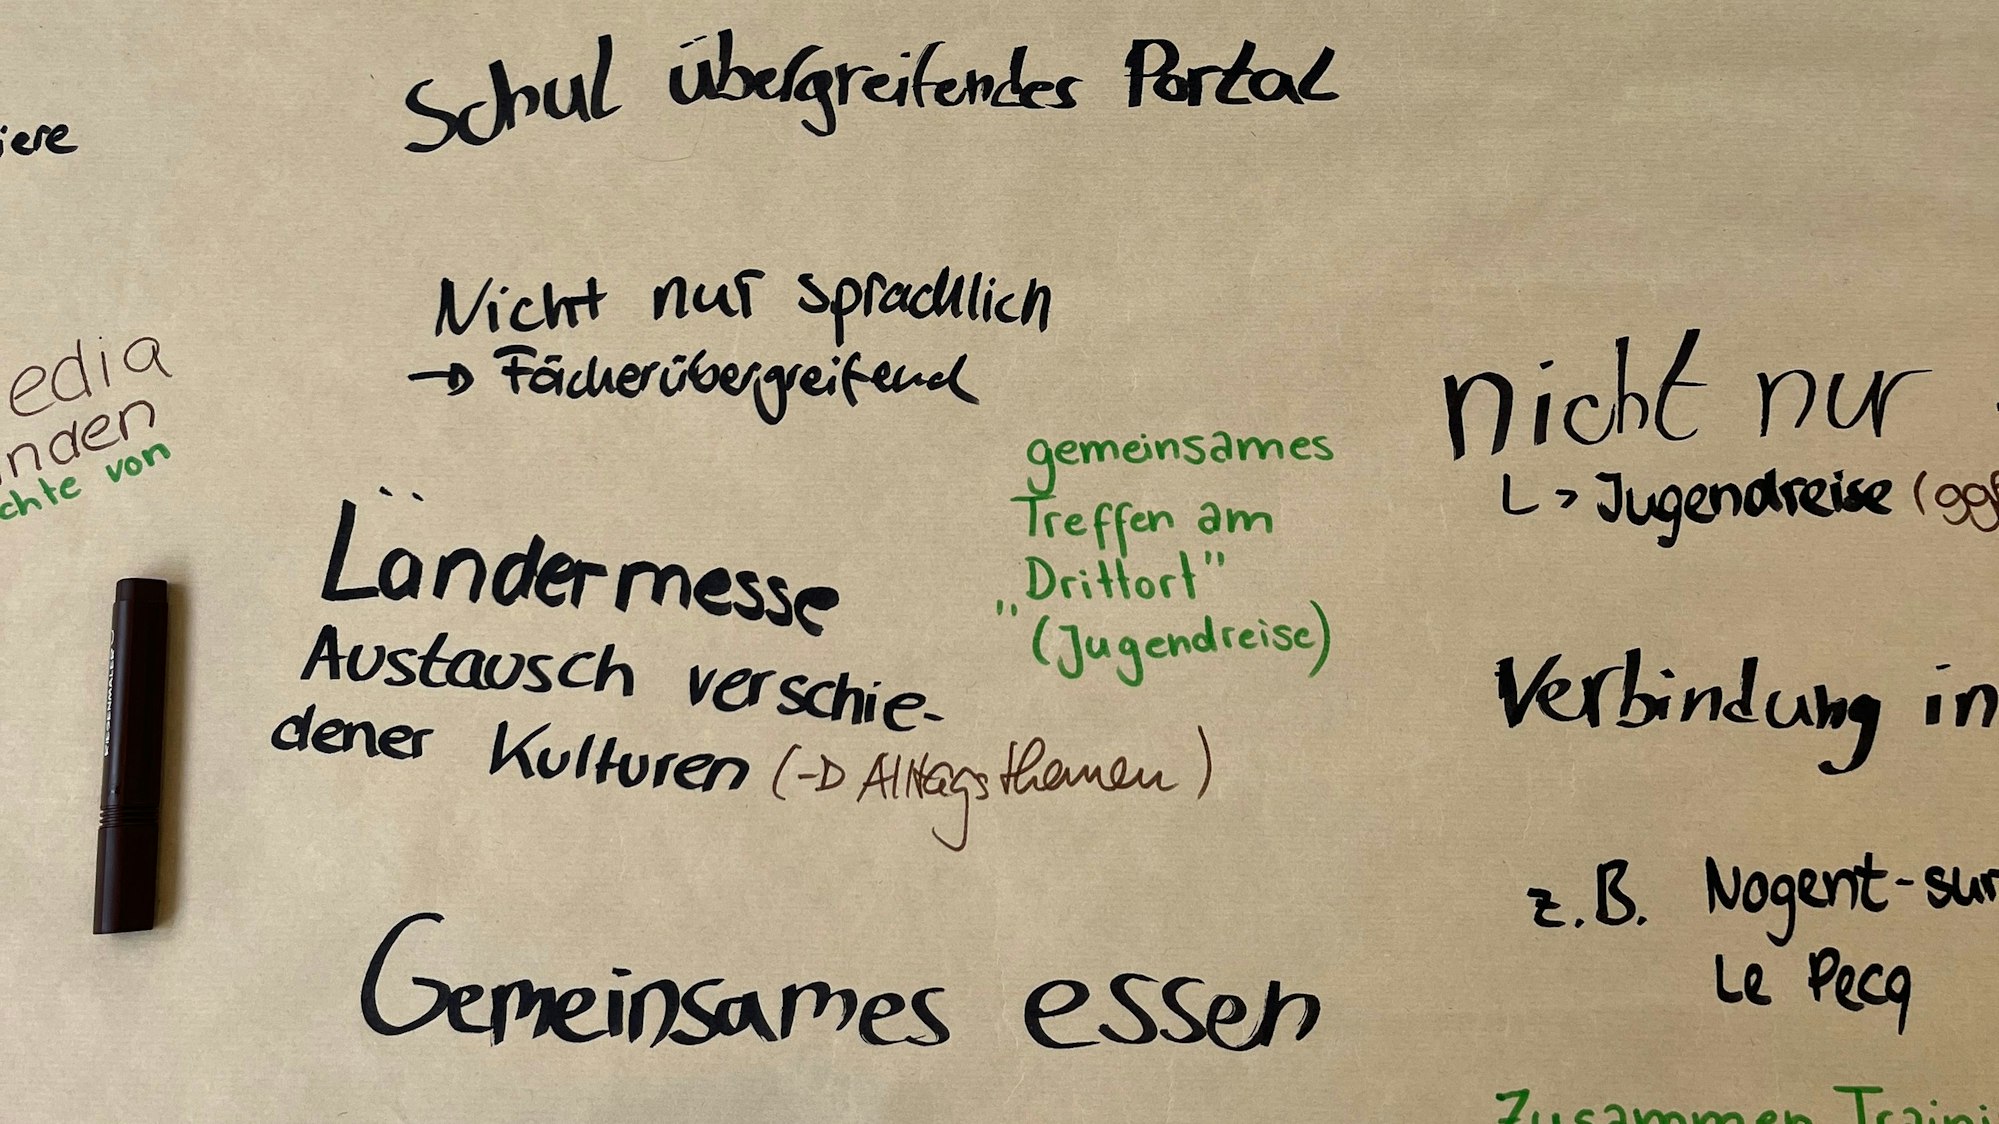 Schul übergreifendes Portal
iere
Nicht nur sprachlich
→ Fächerübergreifend
edia
nden
chte von
Ländermesse
Austausch verschie-
dener Kulturen (→ Alltagsthemen)
gemeinsames
Treffen am
Drittort"
"(Jugendreise)
Gemeinsames essen
nicht nur
L> Jugendreise (ggf
Verbindung in
z.B. Nogent-sur
Le Pecq
Zusammen Traini